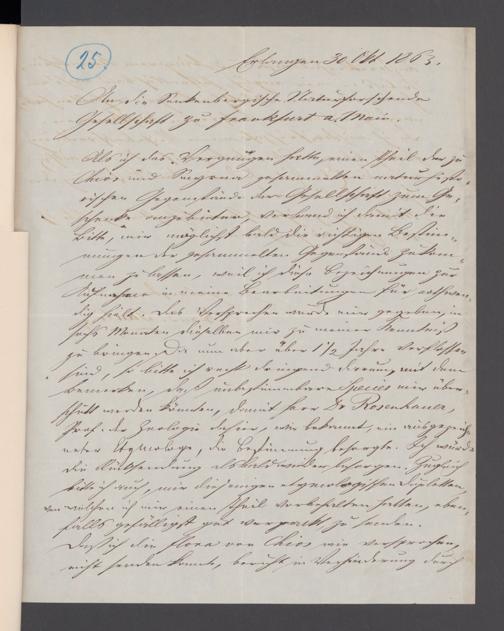 25.
Erlangen 30. Okt 1863.
An die Senkenbergische Naturforschende
Gesellschaft zu Frankfurt a. Main.
Als ich das Vergnügen hatte, einen Theil der zu
Chios und Smyrna gesammelten naturhisto-
rischen Gegenstände der Gesellschaft zum Ge-
schenke anzubieten, verband ich damit die
Bitte, mir möglichst bald die richtigen Bestim-
mungen der gesammelten Gegenstände zukom-
men zu lassen, weil ich diese Bezeichnungen zur
Aufnahme in meine Bearbeitungen für nothwen-
dig hielt. Das Versprechen wurde mir gegeben, in
sechs Monaten dieselben mir zu meiner Kenntniß
zu bringen. Da nun aber über 1 1/2 Jahre verflossen
sind, so bitte ich recht dringend darum, mit dem
Bemerken, daß unbestimmbare Species mir über-
schickt werden könnten, damit Herr Dr Rosenhauer,
Prof. der Zoologie dahier, wie bekannt, ein ausgezeich-
neter die Bestimmung besorgte. Ich würde
die Rücksendung alsbald wieder besorgen. Zugleich
bitte ich auch, mir diejenigen
von welchen ich mir einen Theil vorbehalten hatte, eben-
falls gefälligst gut verpackt zu senden.
Daß ich die Flora von Chios, wie versprochen,
nicht senden konnte, beruht in Verhinderung durch